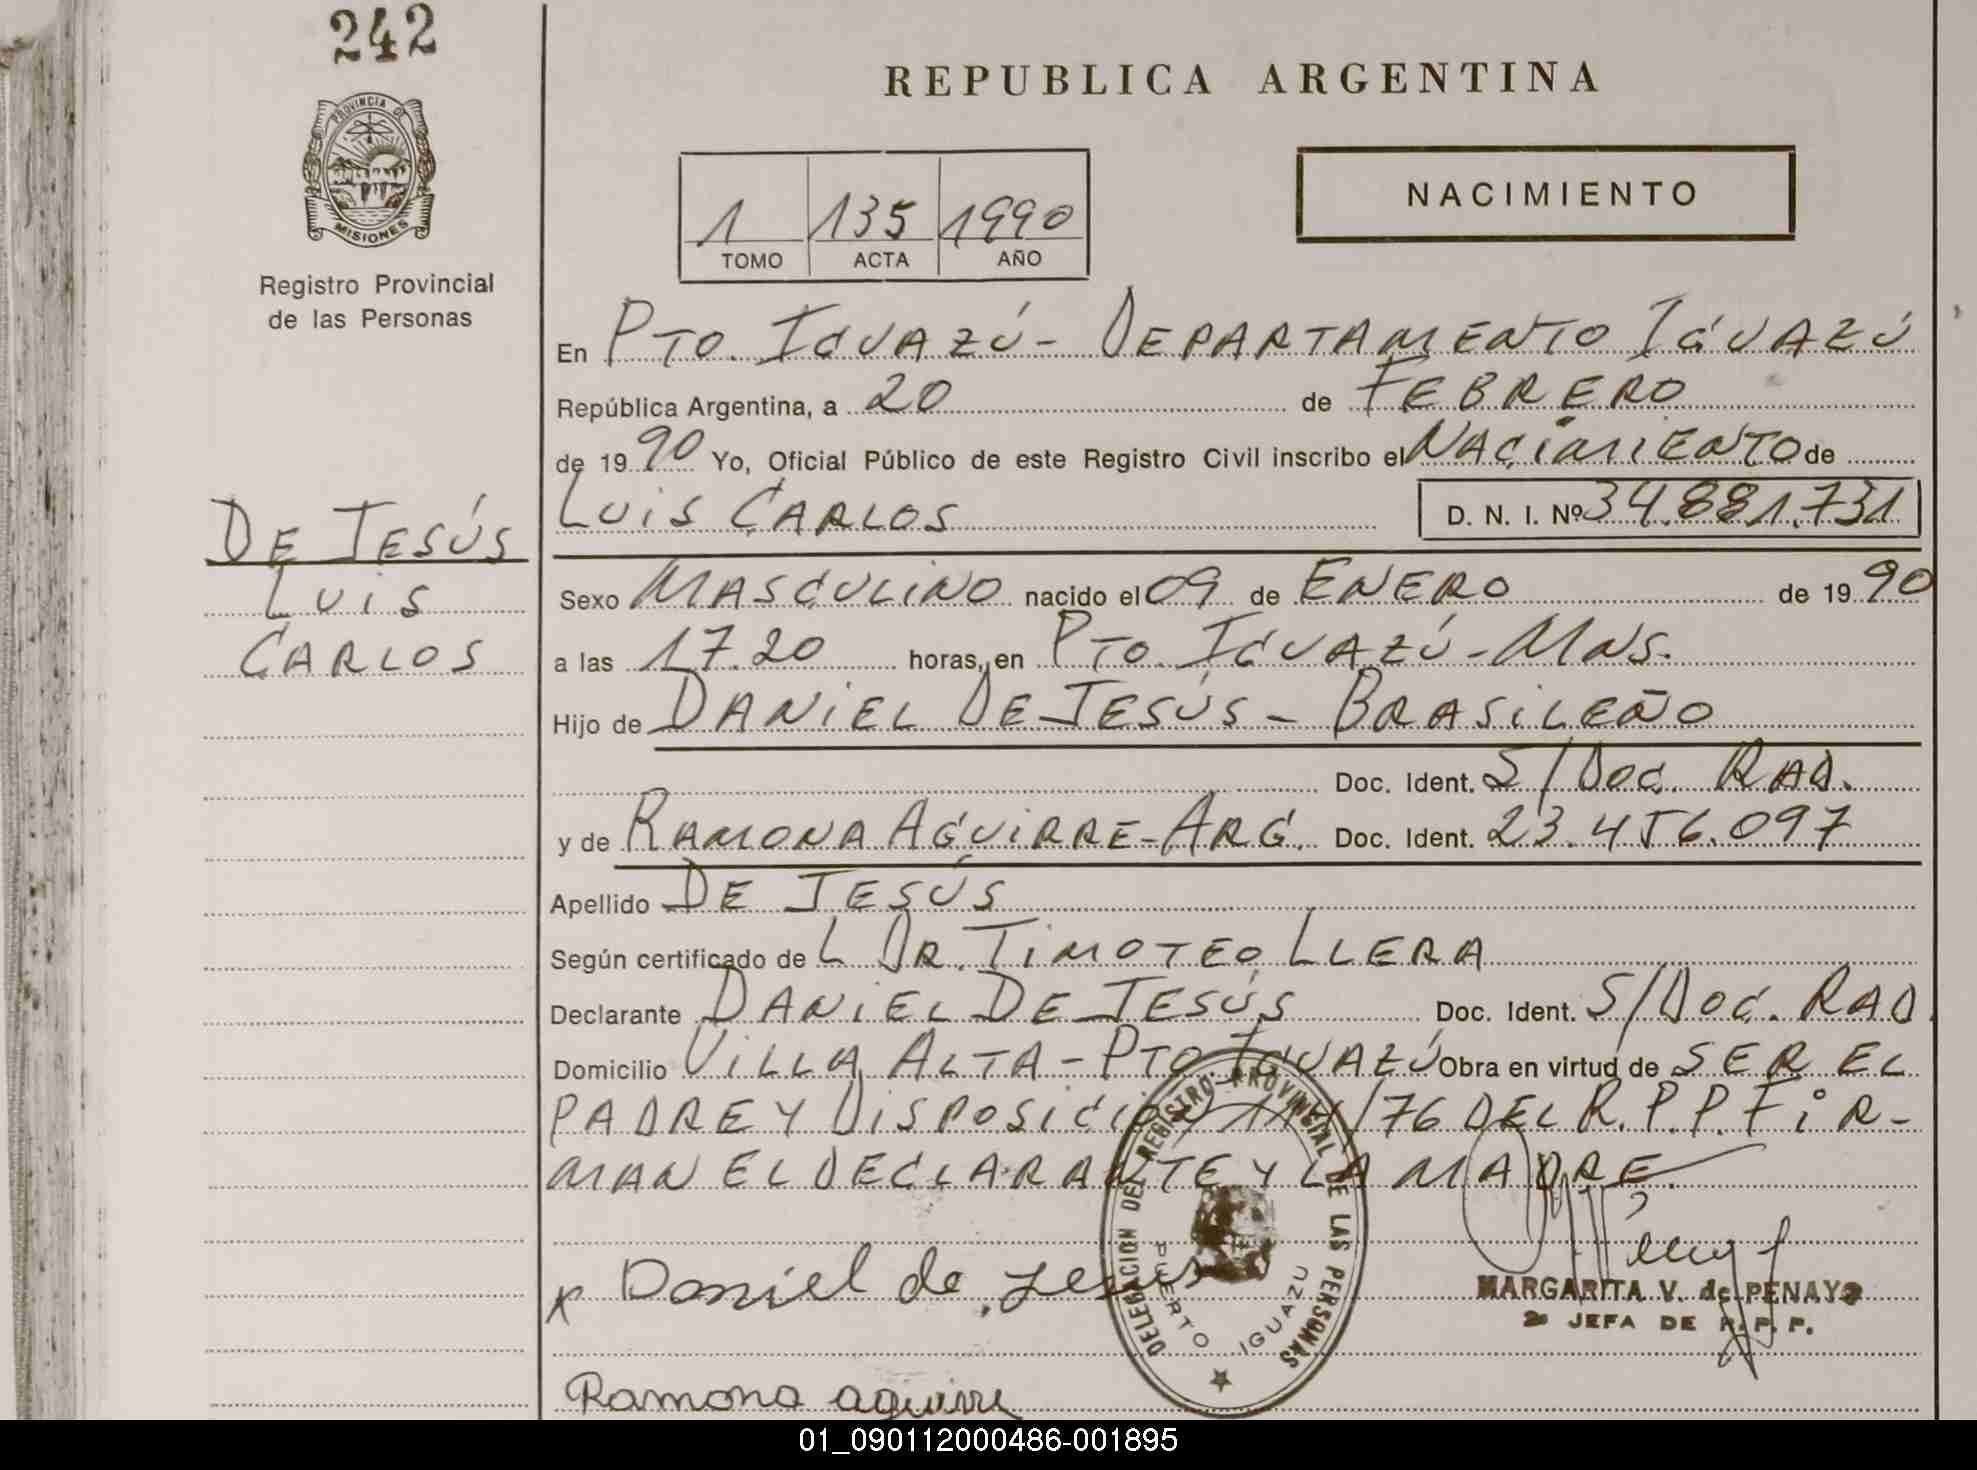 242
PROVINCIA DE
MISIONES
Registro Provincial
de las Personas
REPUBLICA ARGENTINA
NACIMIENTO
1 135 1990
TOMO ACTA AÑO
En PTO. IGUAZÚ - DEPARTAMENTO IGUAZÚ
República Argentina, a 20 de FEBRERO
de 1990 Yo, Oficial Público de este Registro Civil inscribo el NACIMIENTO de
LUIS CARLOS D. N. I. Nº 34.881.731
DE JESÚS
LUIS
CARLOS
Sexo MASCULINO nacido el 09 de ENERO de 1990
a las 17.20 horas, en PTO. IGUAZÚ - MNS.
Hijo de DANIEL DE JESÚS - BRASILEÑO
Doc. Ident. S/DOC. RAD.
y de RAMONA AGUIRRE - ARG. Doc. Ident. 23.456.097
Apellido DE JESÚS
Según certificado de L DR. TIMOTEO LLERA
Declarante DANIEL DE JESÚS Doc. Ident. S/DOC. RAD.
Domicilio VILLA ALTA - PTO. IGUAZÚ Obra en virtud de SER EL
PADRE Y DISPOSICIÓN /76 DEL R.P.P. FIR-
MAN EL DECLARANTE Y LA MADRE.
x Daniel de Jesus
DELEGACION DEL REGISTRO PROVINCIAL DE LAS PERSONAS
PUERTO IGUAZU
MARGARITA V. de PENAYO
JEFA DE R. P. P.
Ramona aguirre
01_090112000486-001895